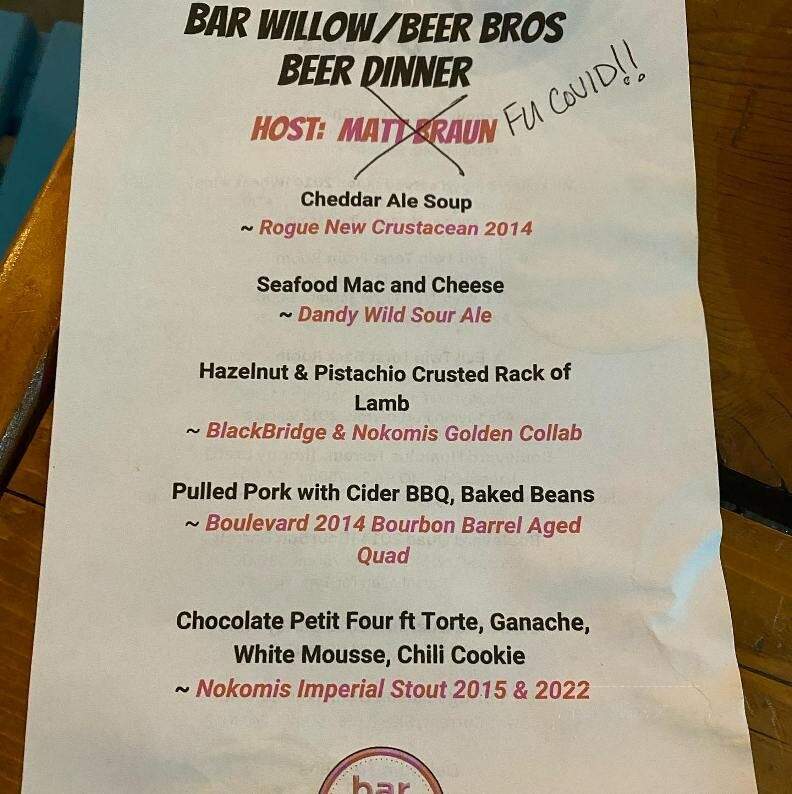 BAR WILLOW/BEER BROS
BEER DINNER
HOST: MATT BRAUN FU COVID!!
Cheddar Ale Soup
~ Rogue New Crustacean 2014
Seafood Mac and Cheese
~ Dandy Wild Sour Ale
Hazelnut & Pistachio Crusted Rack of
Lamb
~ BlackBridge & Nokomis Golden Collab
Pulled Pork with Cider BBQ, Baked Beans
~ Boulevard 2014 Bourbon Barrel Aged
Quad
Chocolate Petit Four ft Torte, Ganache,
White Mousse, Chili Cookie
~ Nokomis Imperial Stout 2015 & 2022
bar